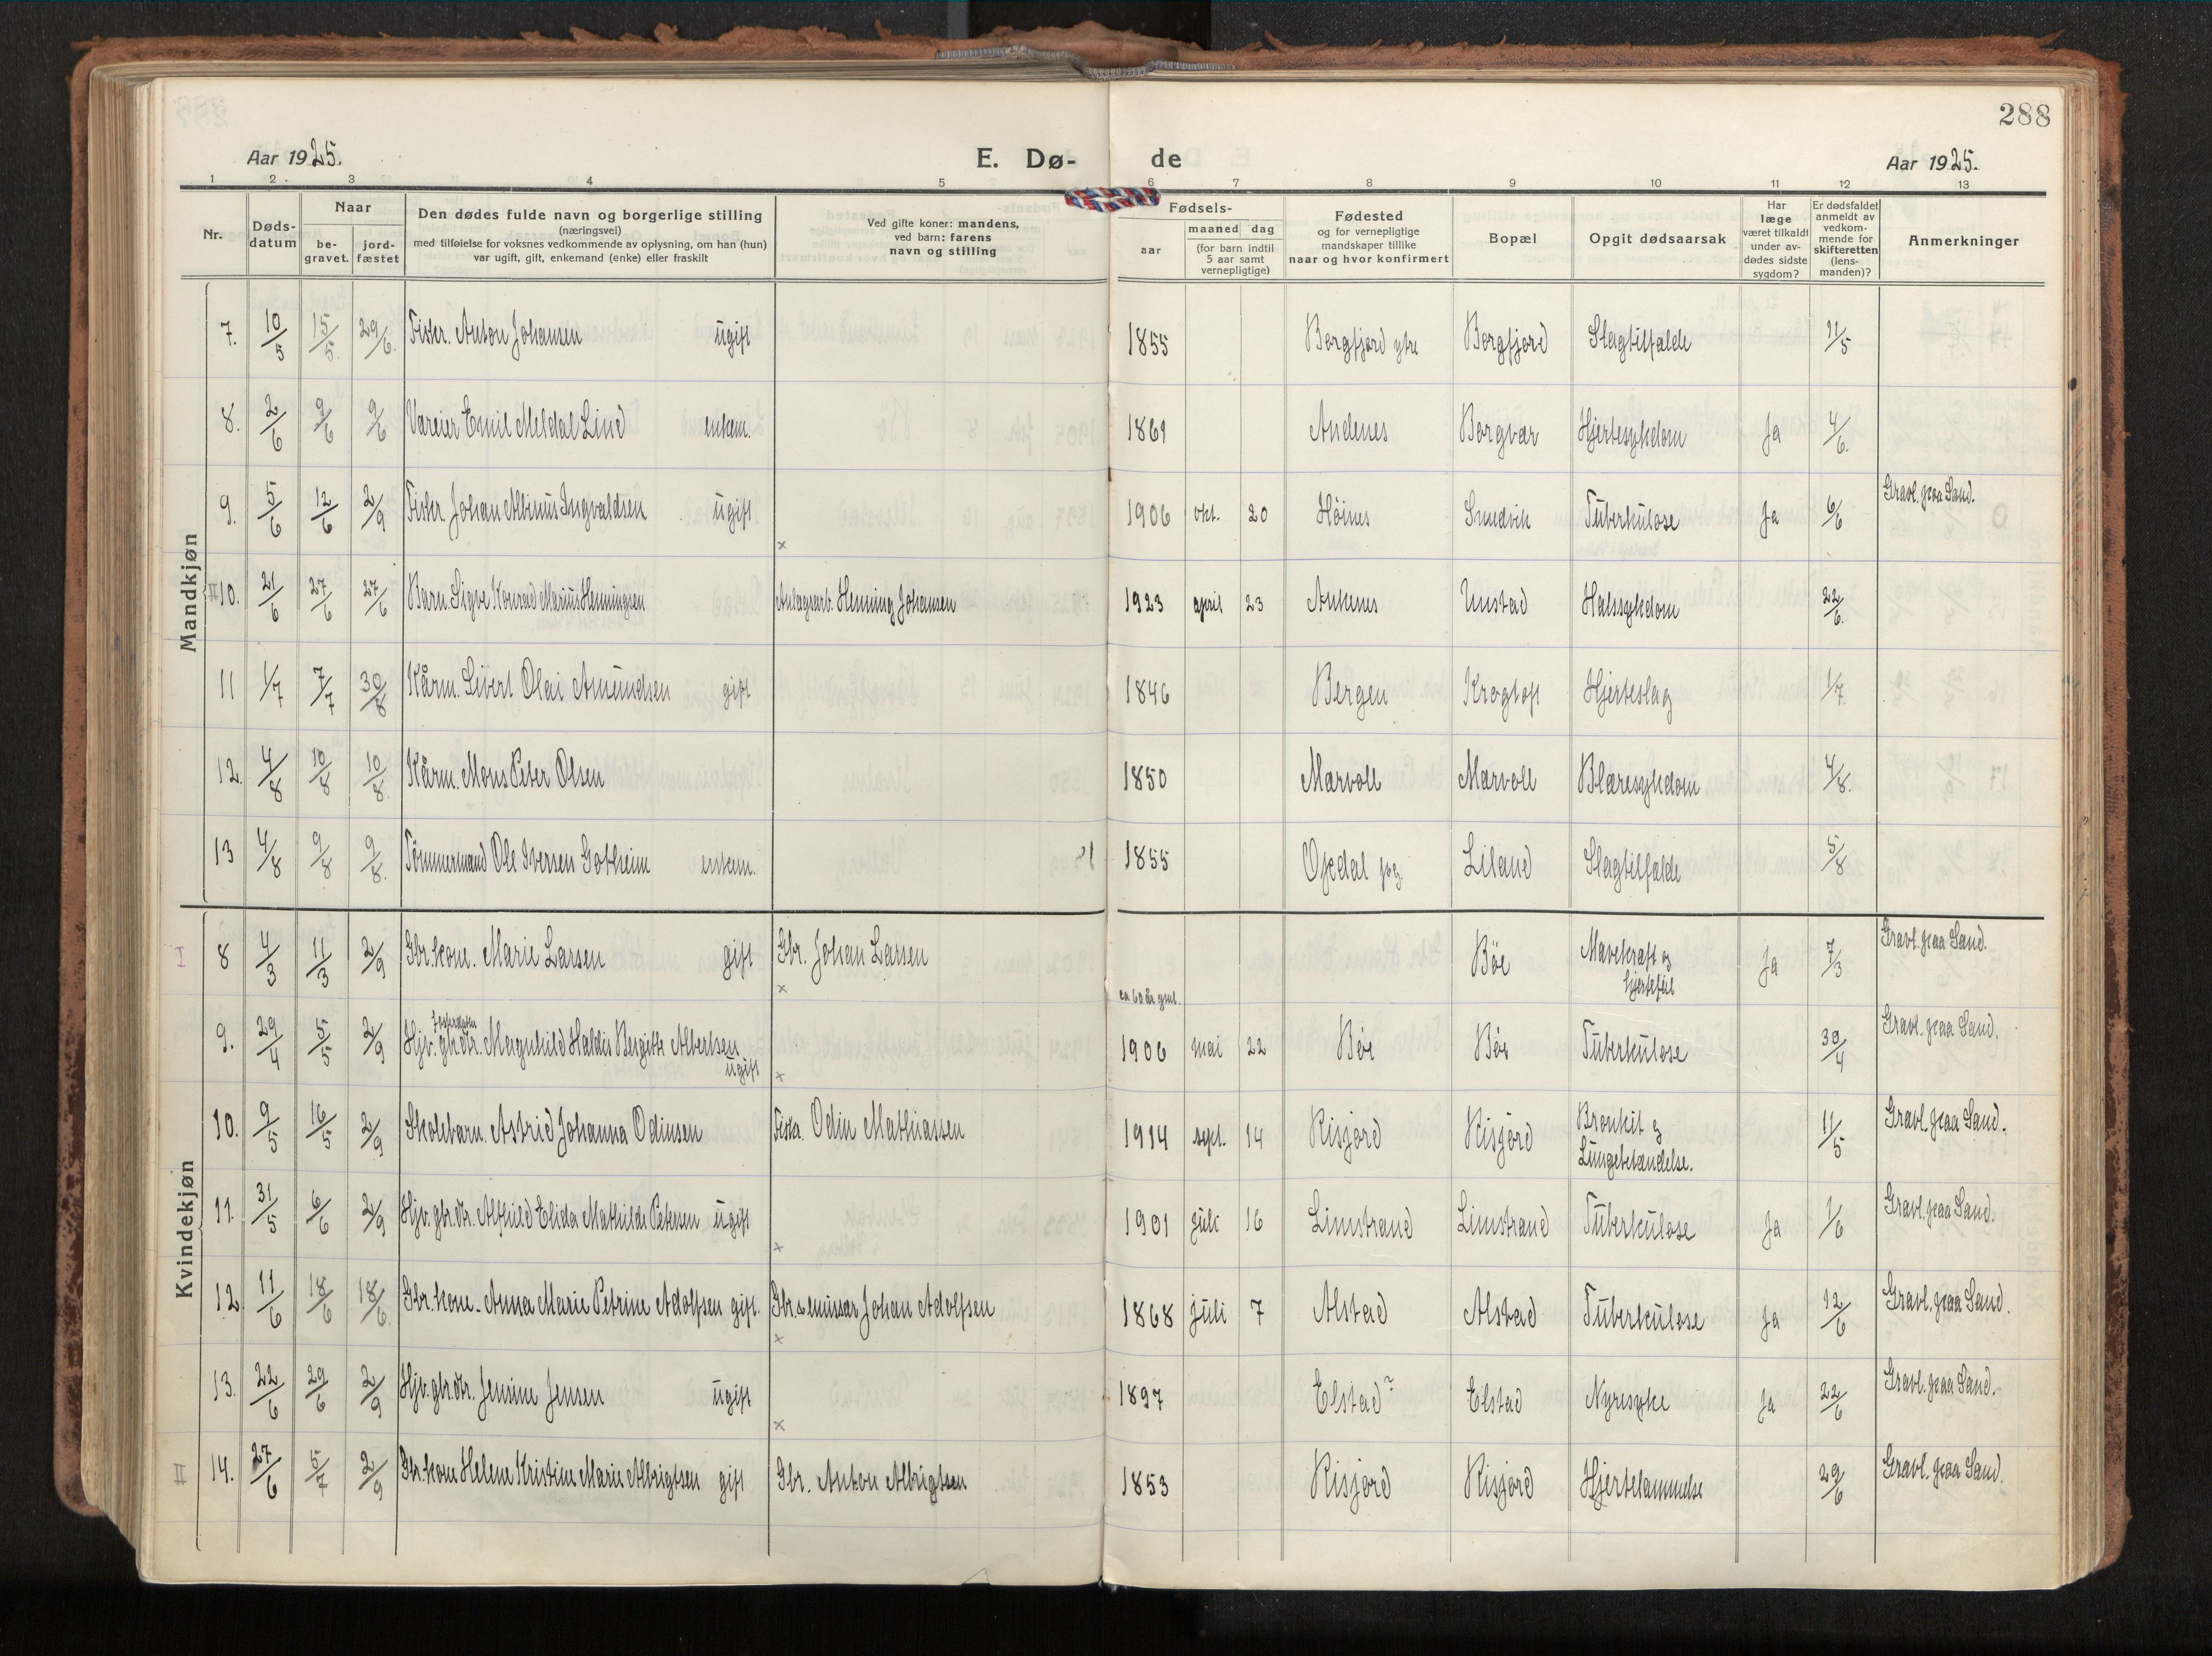 288
Aar 1925. E. Dø- de Aar 1925.
1 2 3 4 5 6 7 8 9 10 11 12 13
Nr.
Døds-
datum
Naar
be-
gravet.
jord-
fæstet
Den dødes fulde navn og borgerlige stilling
(næringsvei)
med tilføielse for voksnes vedkommende av oplysning, om han (hun)
var ugift, gift, enkemand (enke) eller fraskilt
Ved gifte koner: mandens,
ved barn: farens
navn og stilling
Fødsels-
aar
maaned dag
(for barn indtil
5 aar samt
vernepligtige)
Fødested
og for vernepligtige
mandskaper tillike
naar og hvor konfirmert
Bopæl
Opgit dødsaarsak
Har
læge
været tilkaldt
under av-
dødes sidste
sygdom?
Er dødsfaldet
anmeldt av
vedkom-
mende for
skifteretten
(lens-
manden)?
Anmerkninger
Mandkjøn
7. 10/5 15/5. 29/6. Fisker. Anton Johansen ugift 1855 Borgfjord ytre Borgfjord Slagtilfælde 11/5
8. 2/6 9/6 9/6 Væreier Emil Meldal Lind enkem. 1861 Andenes Borgvær Hjertesykdom Ja 4/6.
9. 5/6 12/6 2/9 Fisker Johan Albinus Ingvaldsen ugift × 1906 okt. 20 Høines Sundvik Tuberkulose Ja 6/6 Gravl. paa Sand.
# 10. 21/6 27/6 27/6 Barn. Sigve Konrad Marius Henningsen Anlægsarb. Henning Johansen 1923 april 23 Ankenes Unstad Halssykdom 22/6.
11 1/7 7/7 30/8 Kårm. Sivert Olai Amundsen gift 1846 Bergen Krogtoft Hjerteslag 1/7.
12. 4/8 10/8 10/8. Kårm. Mons Peter Olsen 1850 Mærvoll Mærvoll Blæresykdom 4/8.
13 4/8 9/8 9/8. Tømmermand Ole Iversen Gotheim enkem. 1855 Opdal pg. Liland Slagtilfælde 5/8
Kvindekjøn
I 8 4/3 11/3 2/9 Gbr. kone. Marie Larsen gift Gbr. Johan Larsen × ca 60 år gml. Bøe Mavekræft og
hjertefeil Ja 7/3 Gravl. paa Sand.
9. 29/4 5/5 2/9 Hjv. gbr.dtr. Magnhild Haldis Bergitte Albertsen
ugift × 1906 mai 22 Bøe Bøe Tuberkulose 30/4 Gravl. paa Sand.
10. 9/5 16/5 2/9 Skolebarn. Astrid Johanna Odinsen Fisker. Odin Mathiassen 1914 sept. 14 Risjord Risjord Bronkit og
Lungebetændelse. 11/5 Gravl. paa Sand.
11. 31/5 6/6 2/9 Hjv. gbr.dtr. Alfhild Elida Mathilde Petersen ugift × 1901 juli 16 Limstrand Limstrand Tuberkulose Ja 1/6 Gravl. paa Sand.
12 11/6 18/6 18/6. Gbr. kone. Anna Marie Petrine Adolfsen gift. Gbr. emissær Johan Adolfsen × 1868 juli 7 Alstad Alstad Tuberkulose Ja 12/6 Gravl. paa Sand.
13. 22/6 29/6 2/9 Hjv. gbr.dtr. Jensine Jensen ugift × 1897 Elstad? Elstad Nyresyke Ja 22/6 Gravl. paa Sand.
# 14. 27/6 5/7 2/9 Gbr. kone Helene Kristine Marie Albrigtsen gift Gbr. Anton Albrigtsen 1853 Risjord Risjord Hjertelammelse 29/6 Gravl. paa Sand.